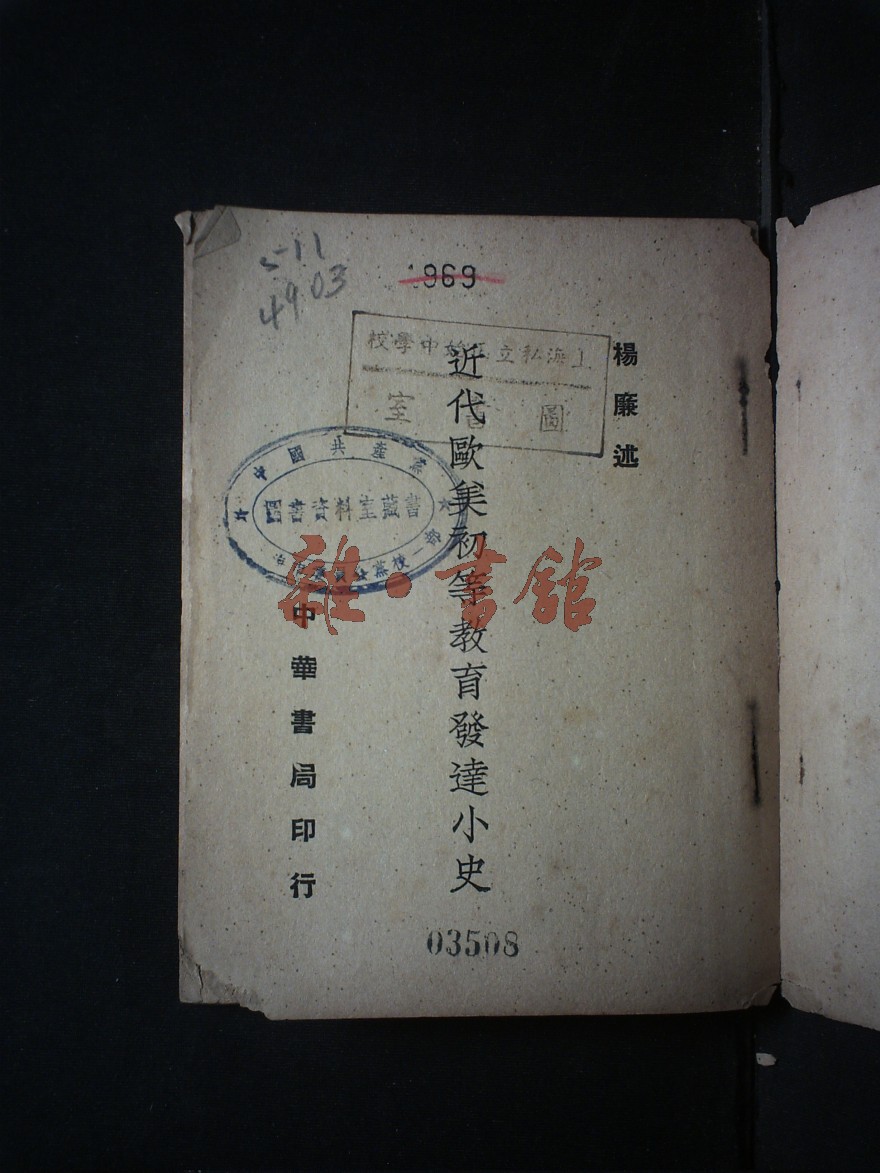 5-11
4903
1969
楊廉述
上海私立 中學校
圖書室
近代歐美初等教育發達小史
中國共產黨
圖書資料室藏書
黨校一部
雜·書館
中華書局印行
03508